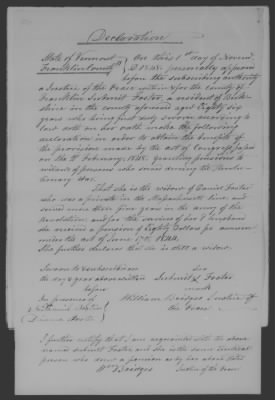 Declaration
State of Vermont On this 1st day of
Franklin County SS A.D. 1848. personally appeared
before the subscribing authority
a Justice of the Peace within & for the county of
Franklin Submit Foster, a resident of Berk-
shire in the county aforesaid aged Eighty six
years who being first duly sworn according to
law doth on her oath make the following
declaration in order to obtain the benefit of
the provision made by the act of Congress passed
on the 2d February, 1848: granting pensions to
widows of persons who served during the Revolu-
tionary War.
That she is the widow of Daniel Foster
who was a private in the Massachusetts line and
served more than five years in the army of the
Revolution and for the services of her husband
she received a pension of Eighty Dollars per annum
under the act of June 17th, 1844.
She further declares that she is still a widow.
Sworn to & subscribed her
the day & year above written Submit X Foster
before mark
In presence of William Bridges Justice of
the Peace
I further certify that I am acquainted with the above
named Submit Foster and she is the same identical
person who drew a pension as by her above stated
Wm Bridges Justice of the Peace